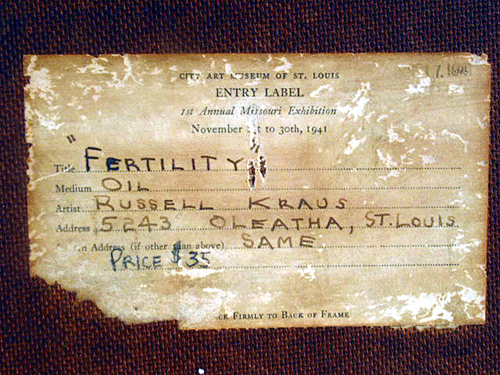 CITY ART MUSEUM OF ST. LOUIS
ENTRY LABEL
1st Annual Missouri Exhibition
November 1st to 30th, 1941
Title "FERTILITY"
Medium OIL
Artist RUSSELL KRAUS
Address 5243 OLEATHA, ST. LOUIS
Address (if other than above) SAME
PRICE $35
CK FIRMLY TO BACK OF FRAME